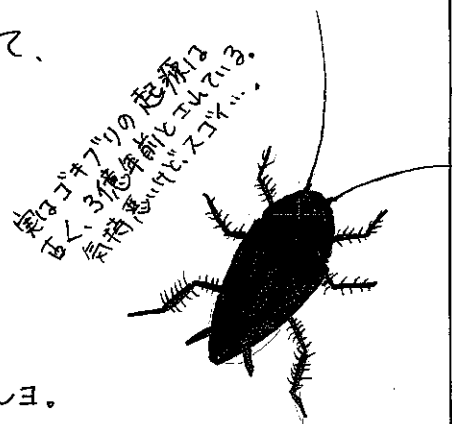 て、
実はゴキブリの起源は
古く、3億年前と云われている。
気持悪いけど、スゴイ…。
モ。